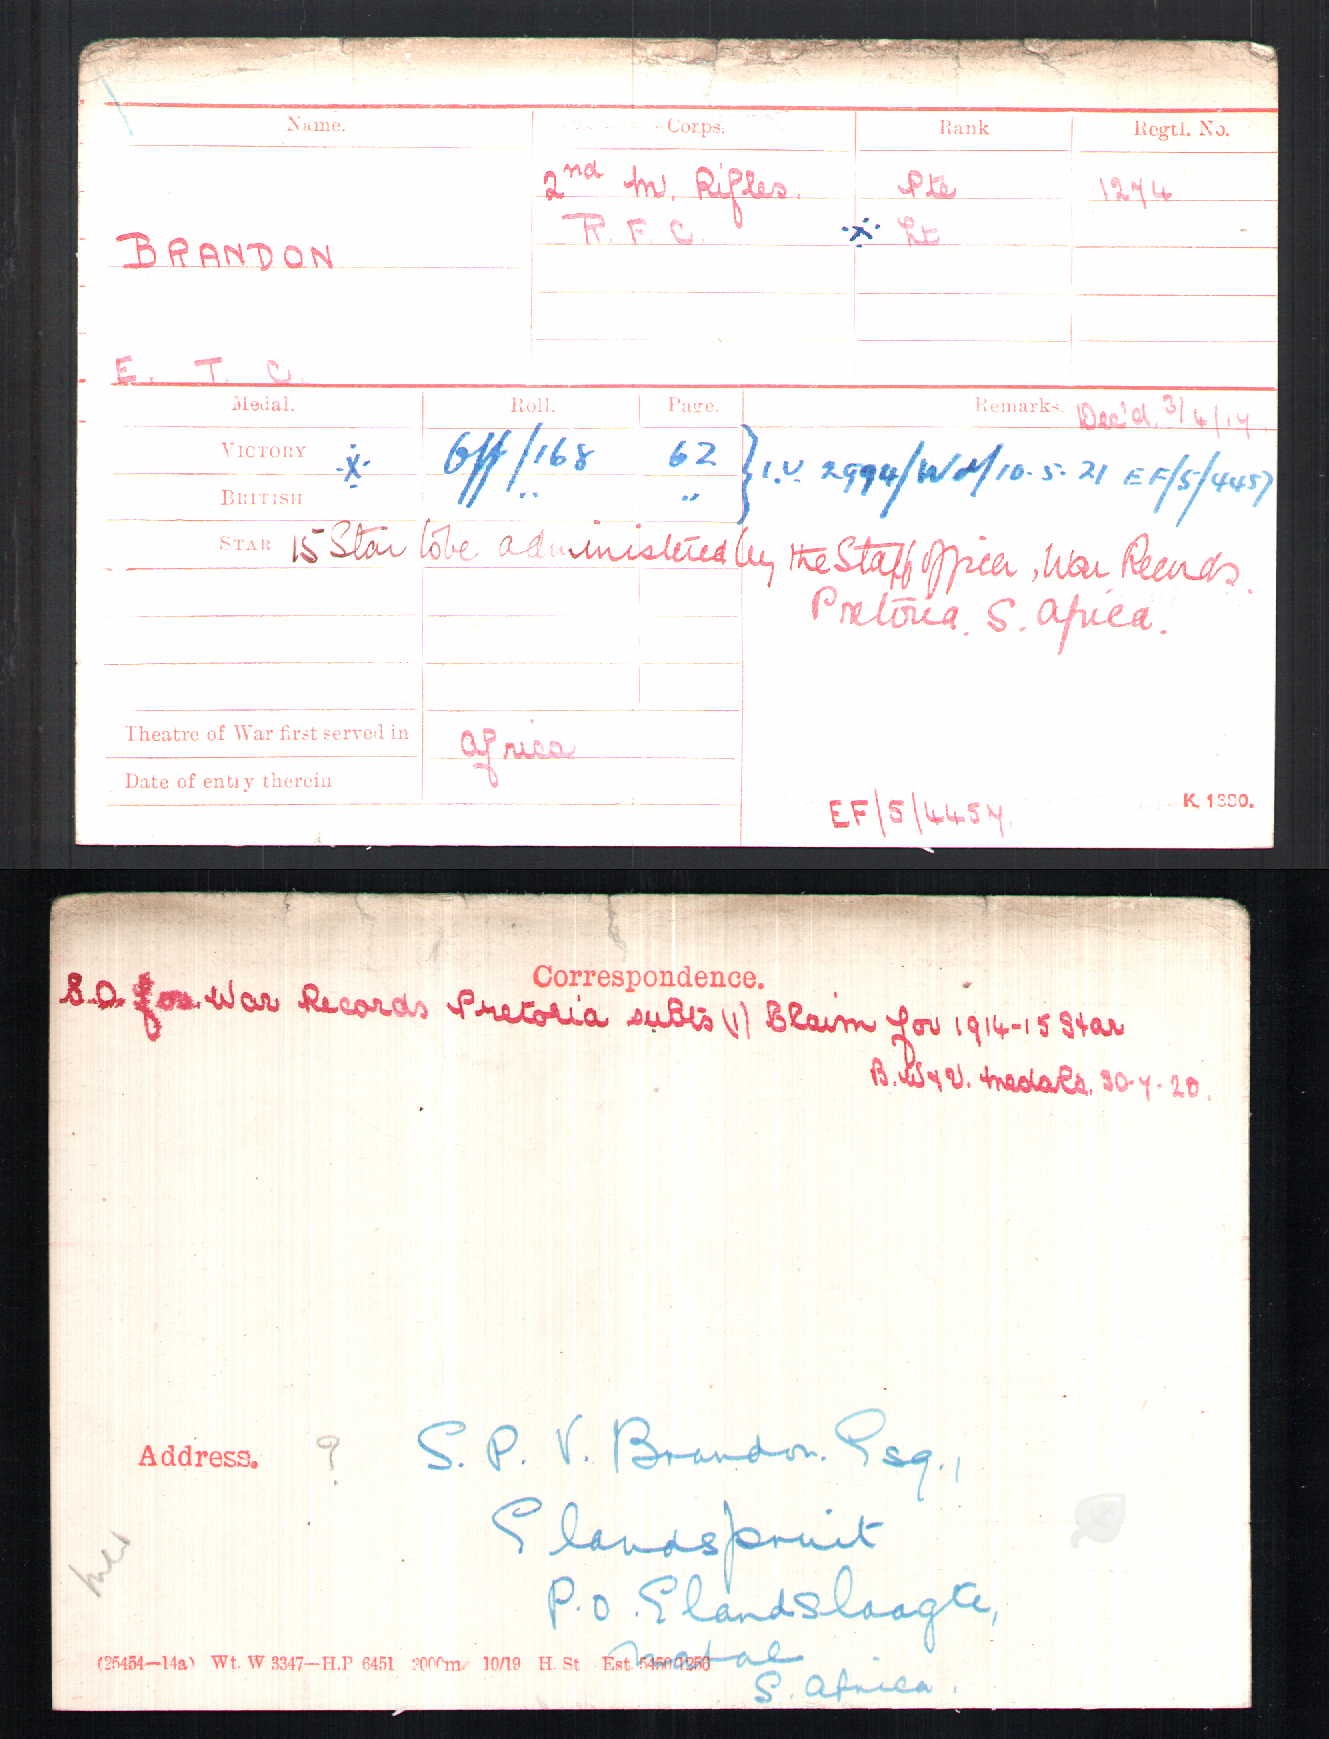 Name. Corps. Rank Regtl. No.
2nd M. Rifles. Pte 1274
R. F. C. * Lt
BRANDON
E. T. C.
Medal. Roll. Page. Remarks. Dec'd. 3/4/17
VICTORY * Off/168 62 } I.V. 2994/ 10-5-21 EF/5/4457
BRITISH " "
STAR 15 Star to be administered by the Staff Officer, War Records.
Pretoria. S. Africa.
Theatre of War first served in Africa
Date of entry therein
EF/5/4457.
K. 1380.
Correspondence.
S.O. for War Records Pretoria subts (1) Claim for 1914-15 Star
B.W & V. medals. 30-7-20.
Address. ? S. P. V. Brandon. Esq.,
Elandspruit
P.O. Elandslaagte,
Natal
S. Africa.
(25454—14a) Wt. W 3347—H.P 6451 2000m 10/19 H. St Est.